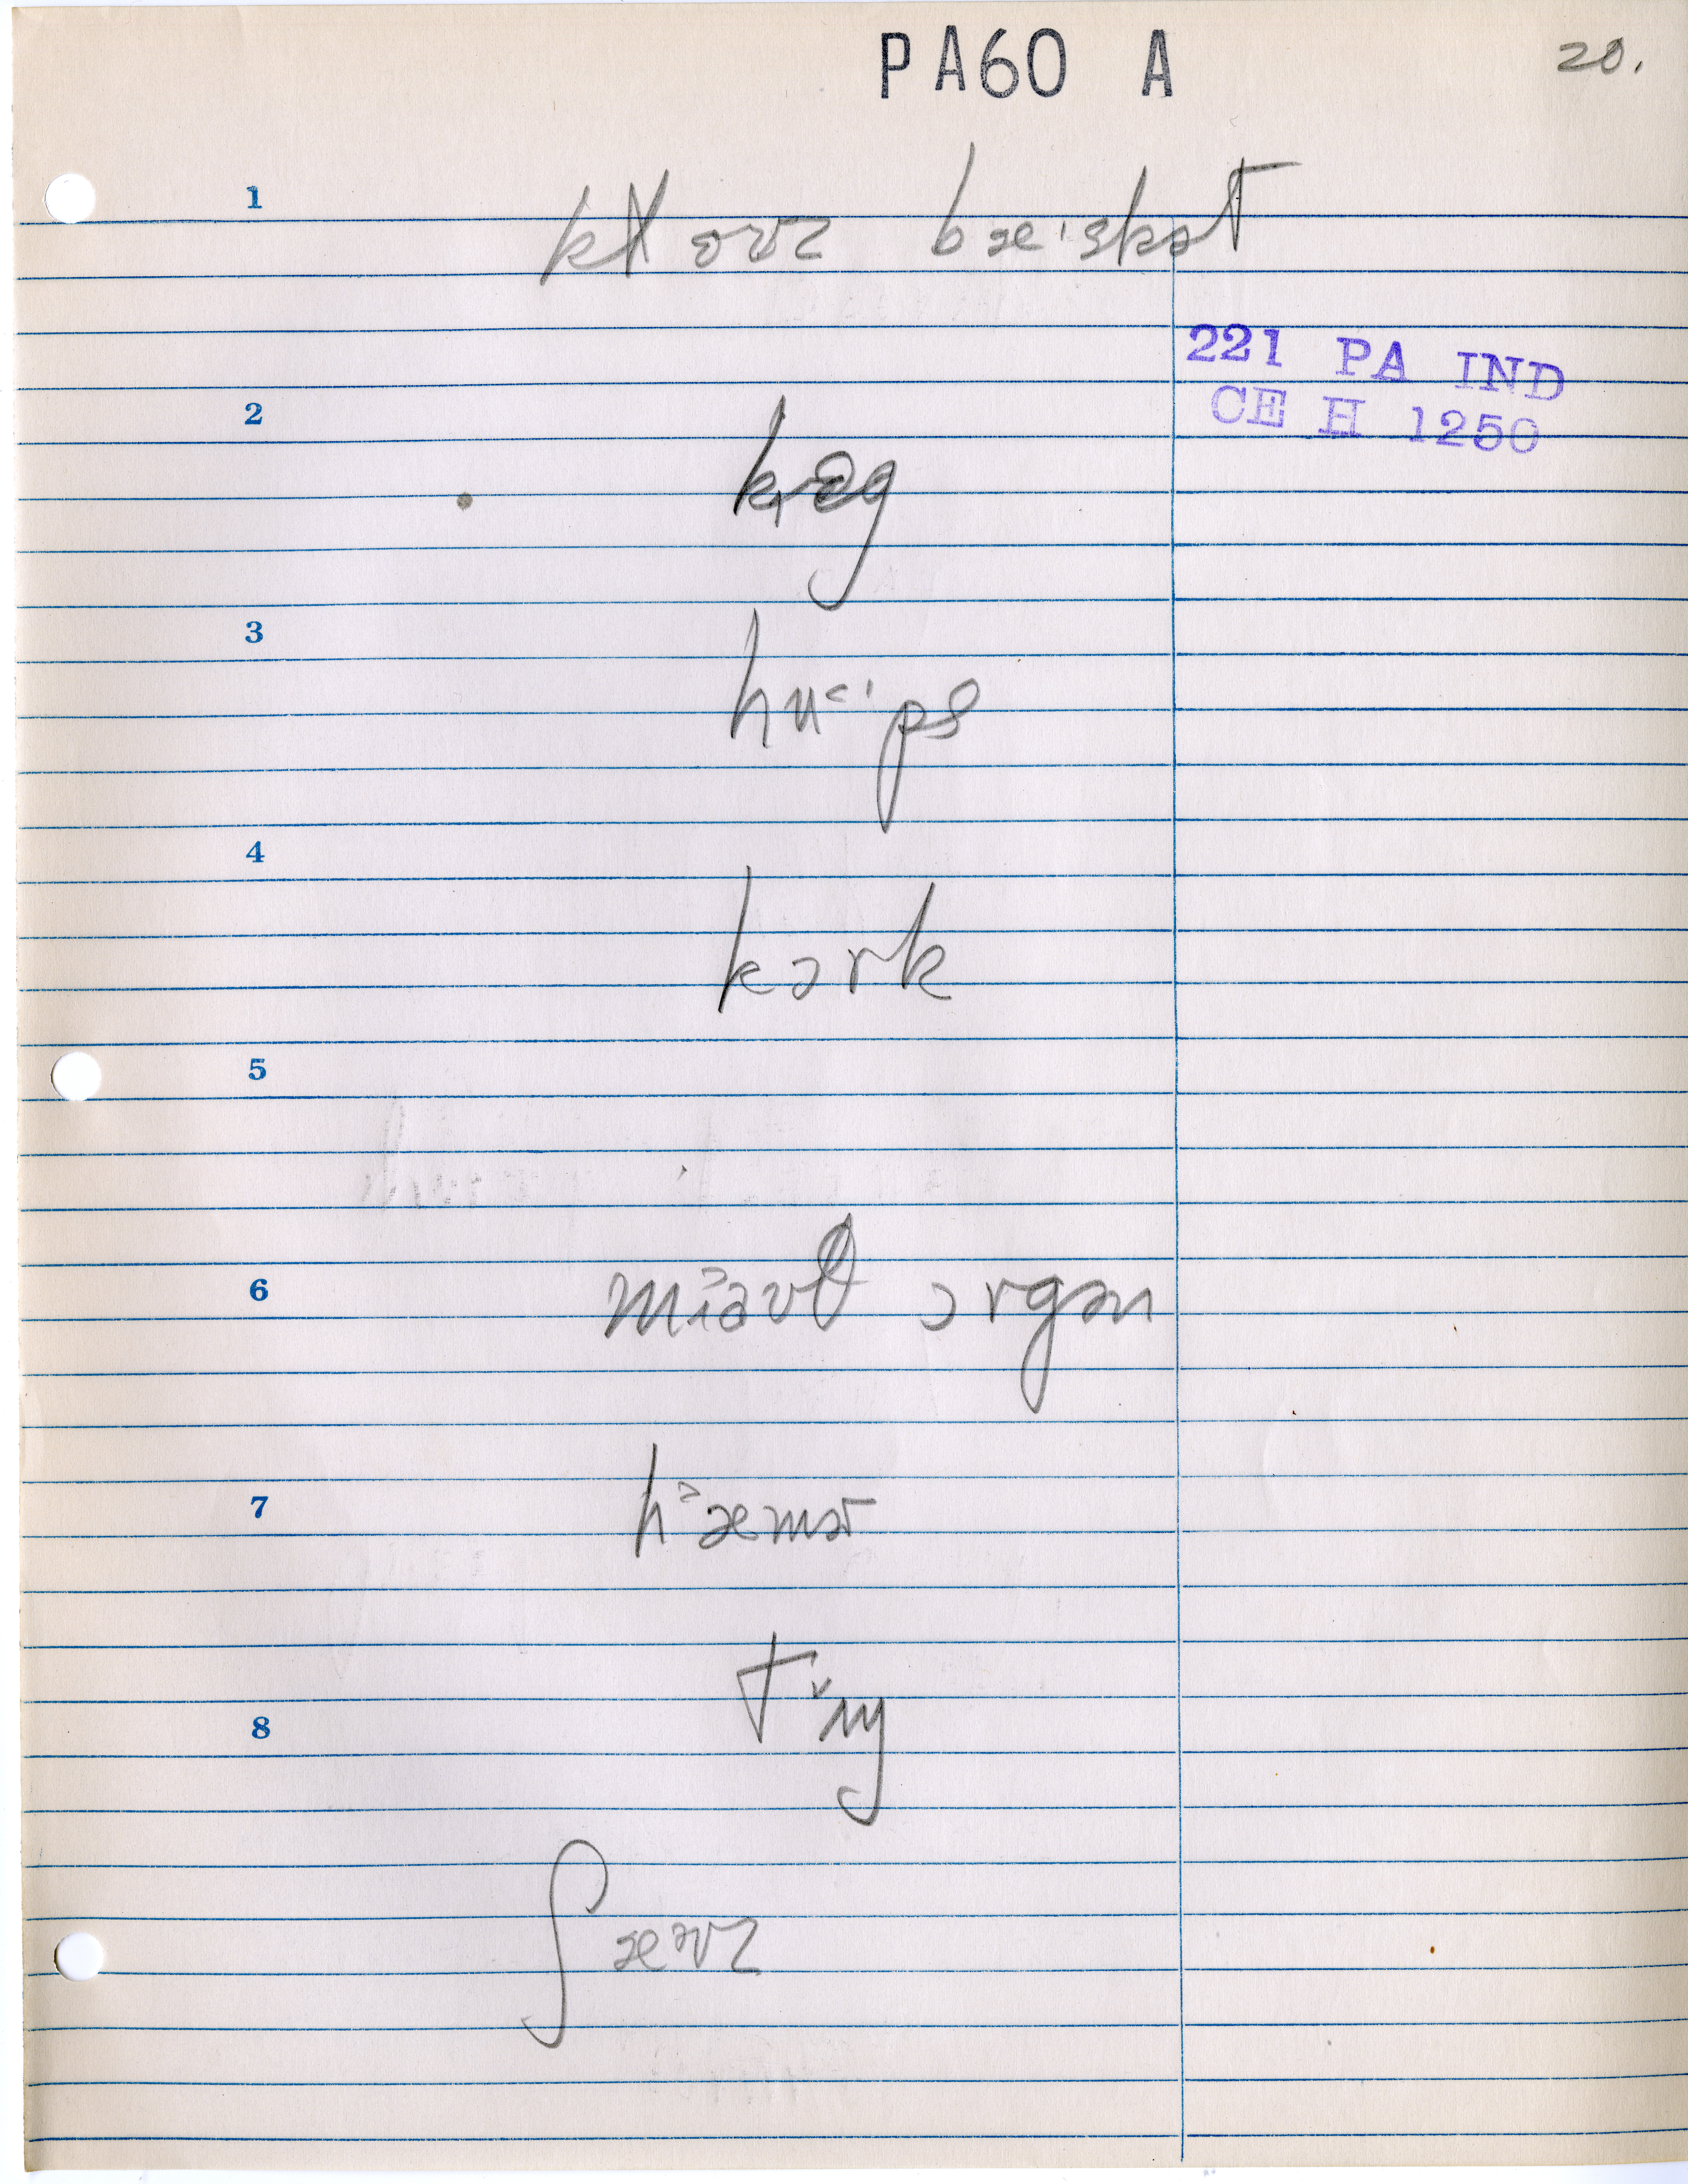 PA60 A 20.
1 klovz bæ·skət
221 PA IND
CE H 1250
2 kɛg
3 hu·ps
4 kɔrk
5
6 mɪ˃əvθ ɔrgən
7 h˃æmər
tᵛɪŋ
8
ʃævz